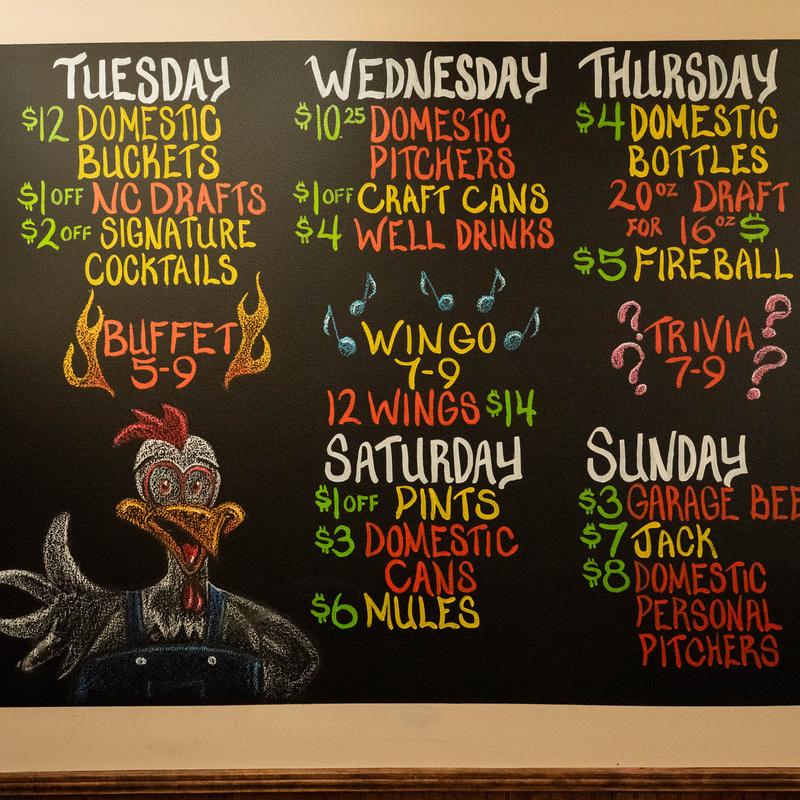 TUESDAY
$12 DOMESTIC
BUCKETS
$1 OFF NC DRAFTS
$2 OFF SIGNATURE
COCKTAILS
BUFFET
5-9
WEDNESDAY
$10.25 DOMESTIC
PITCHERS
$1 OFF CRAFT CANS
$4 WELL DRINKS
WINGO
7-9
12 WINGS $14
THURSDAY
$4 DOMESTIC
BOTTLES
20oz DRAFT
FOR 16oz $
$5 FIREBALL
? TRIVIA ?
? 7-9 ?
SATURDAY
$1 OFF PINTS
$3 DOMESTIC
CANS
$6 MULES
SUNDAY
$3 GARAGE BEE
$7 JACK
$8 DOMESTIC
PERSONAL
PITCHERS